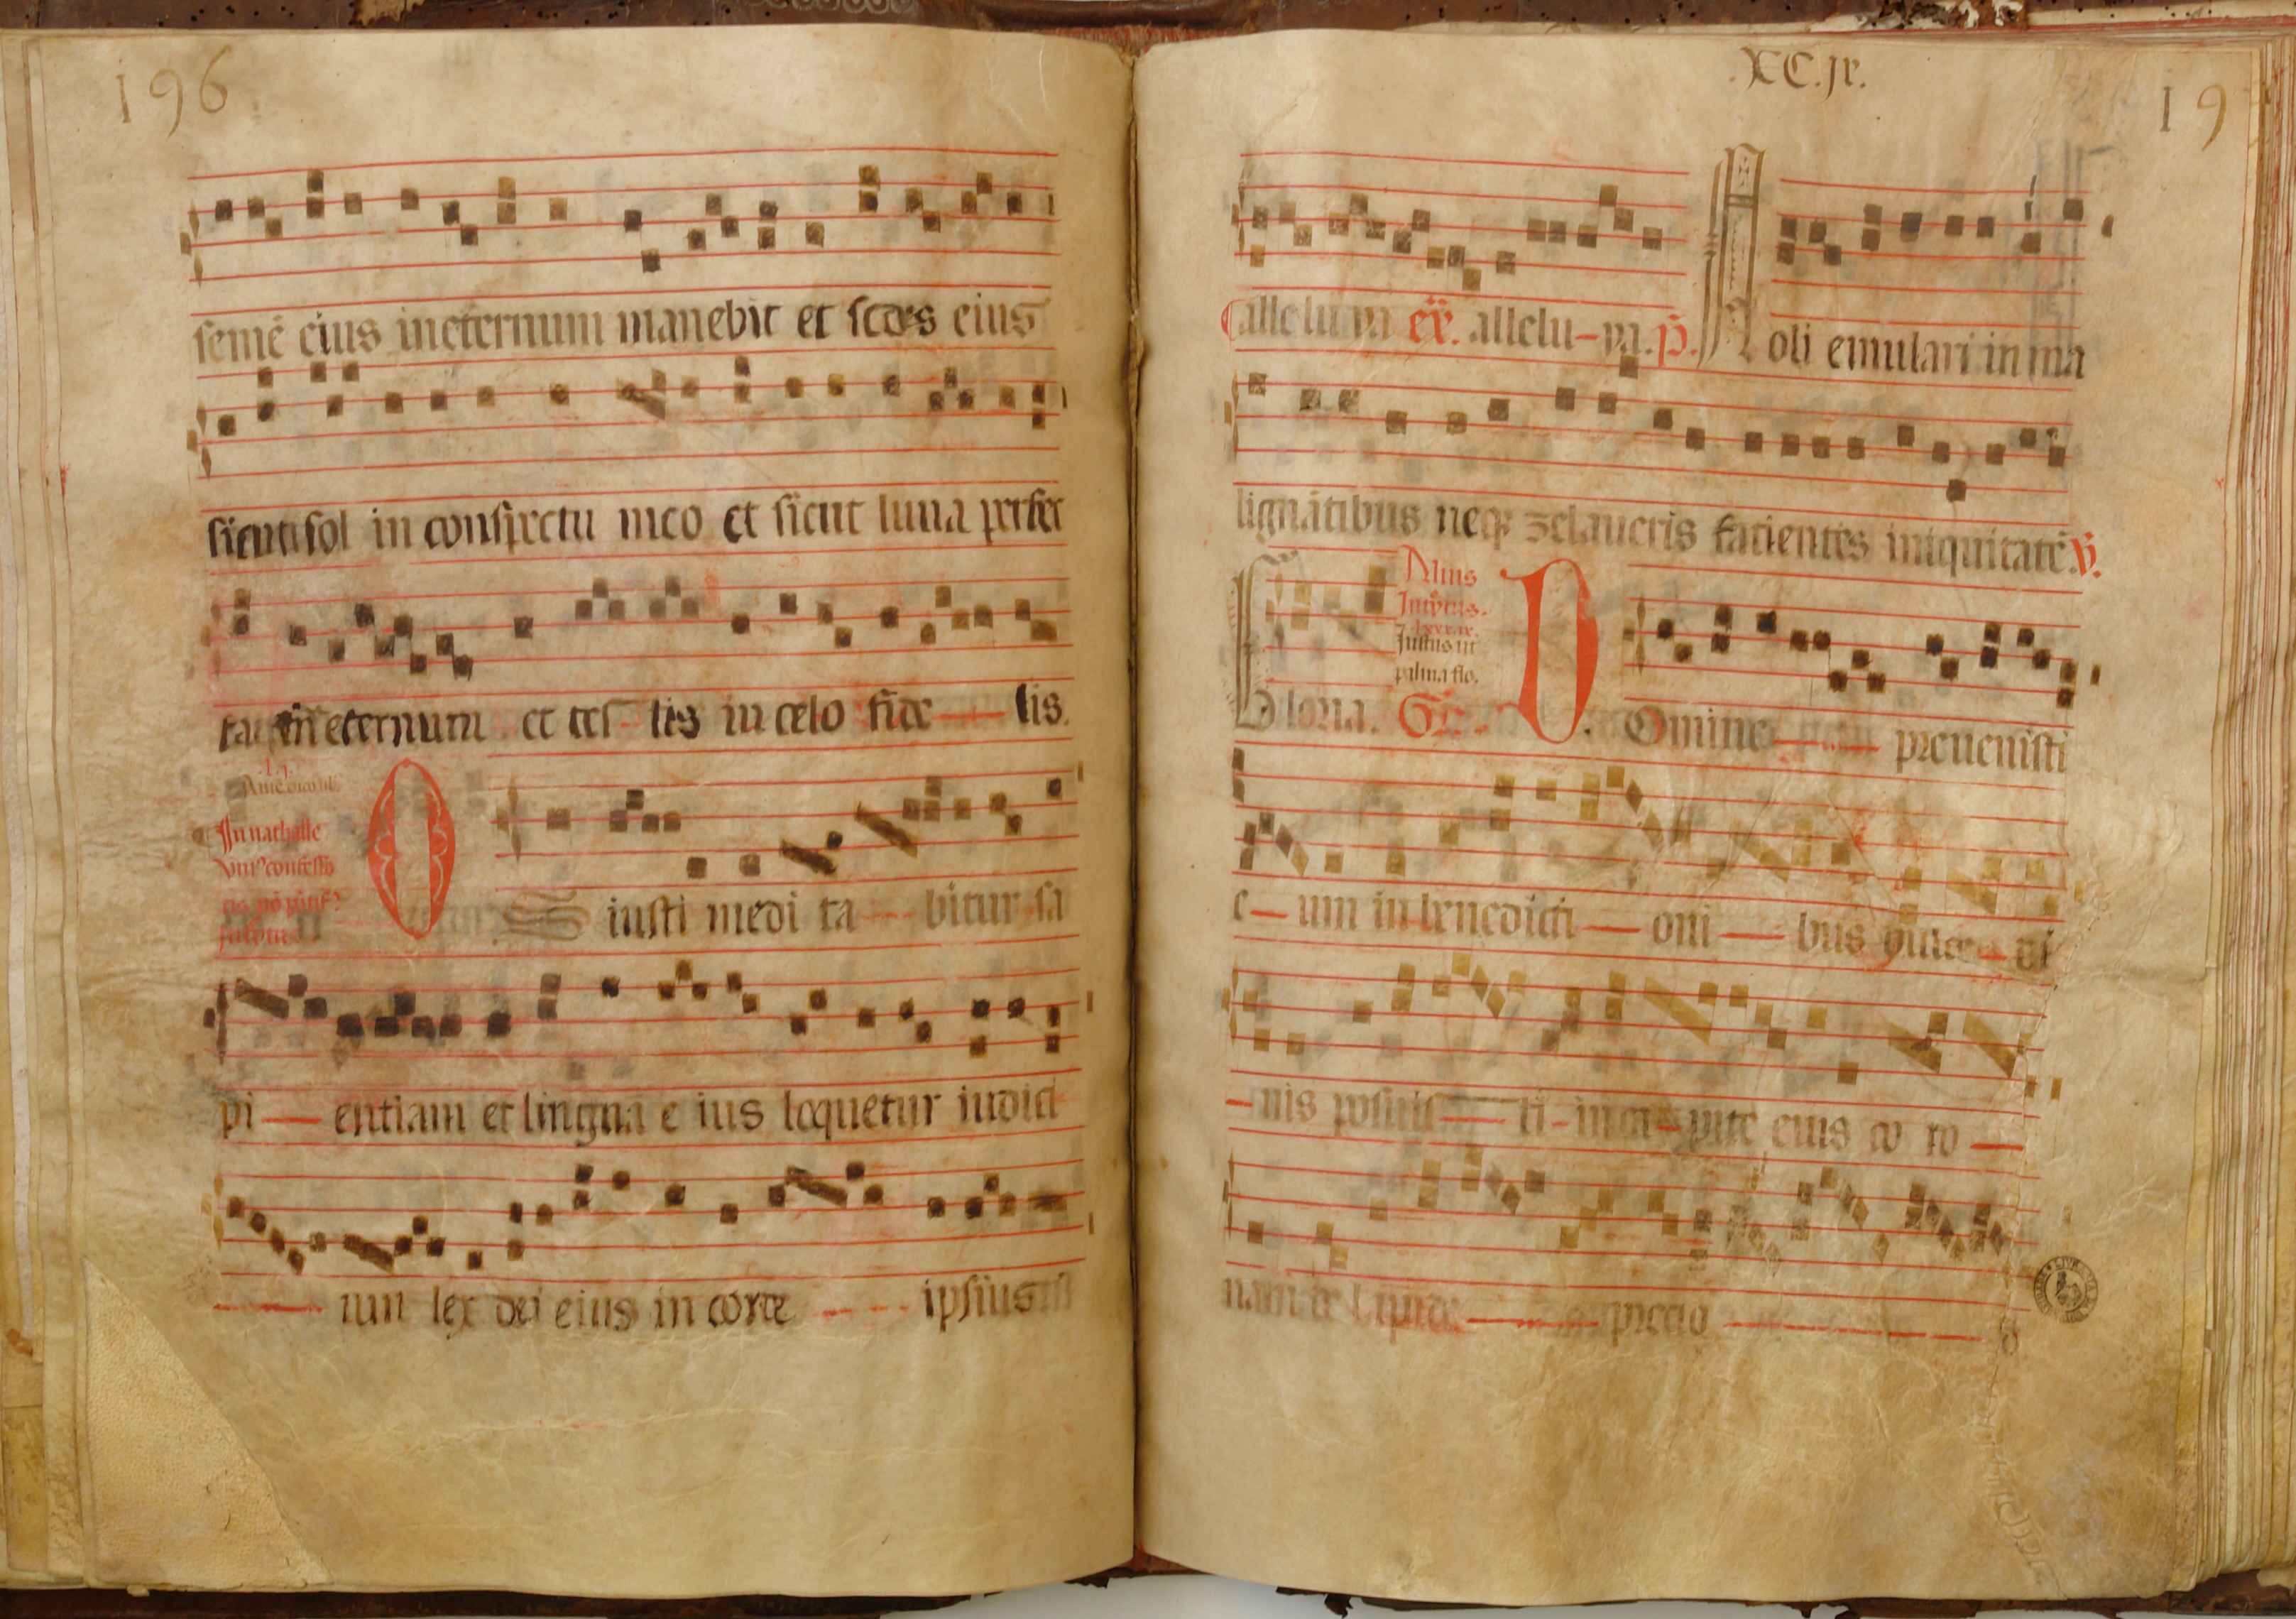 196
semē eius ineternum manebit et sedes eius
sicut sol in conspectu meo et sicut luna perfec
ta in eternum et tes- tis in celo fide — lis.
Amē dico vob
In nathalle
vniꝰ confesso
ris nō pōtif
O iusti medi ta bitur sa
pi — entiam et lingua e ius loquetur iudici
— ium lex dei eius in corde ipsius
XC.jx.
19
alleluya ex. allelu-ya. p̄. Noli emulari in ma
lignātibus neqꝫ zelaueris facientes iniquitatē. v̄.
Alius
Introitus.
Justus ut
palma flo.
Gloria. Gr. D Omine — preuenisti
e — um in benedicti — oni — bus dulce di
— nis posuis — ti - in ca - pite eius co ro —
nam de lapide — precio —